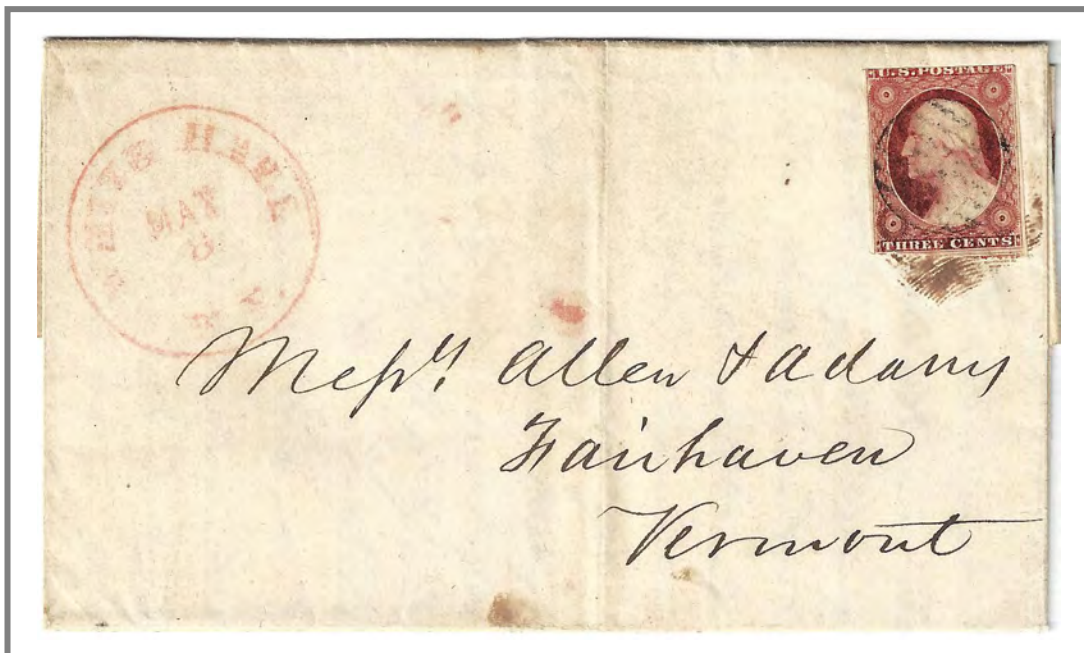 WHITE HALL
MAY
8
N.Y.
U.S. POSTAGE
THREE CENTS
Messrs. Allen & Adams
Fairhaven
Vermont